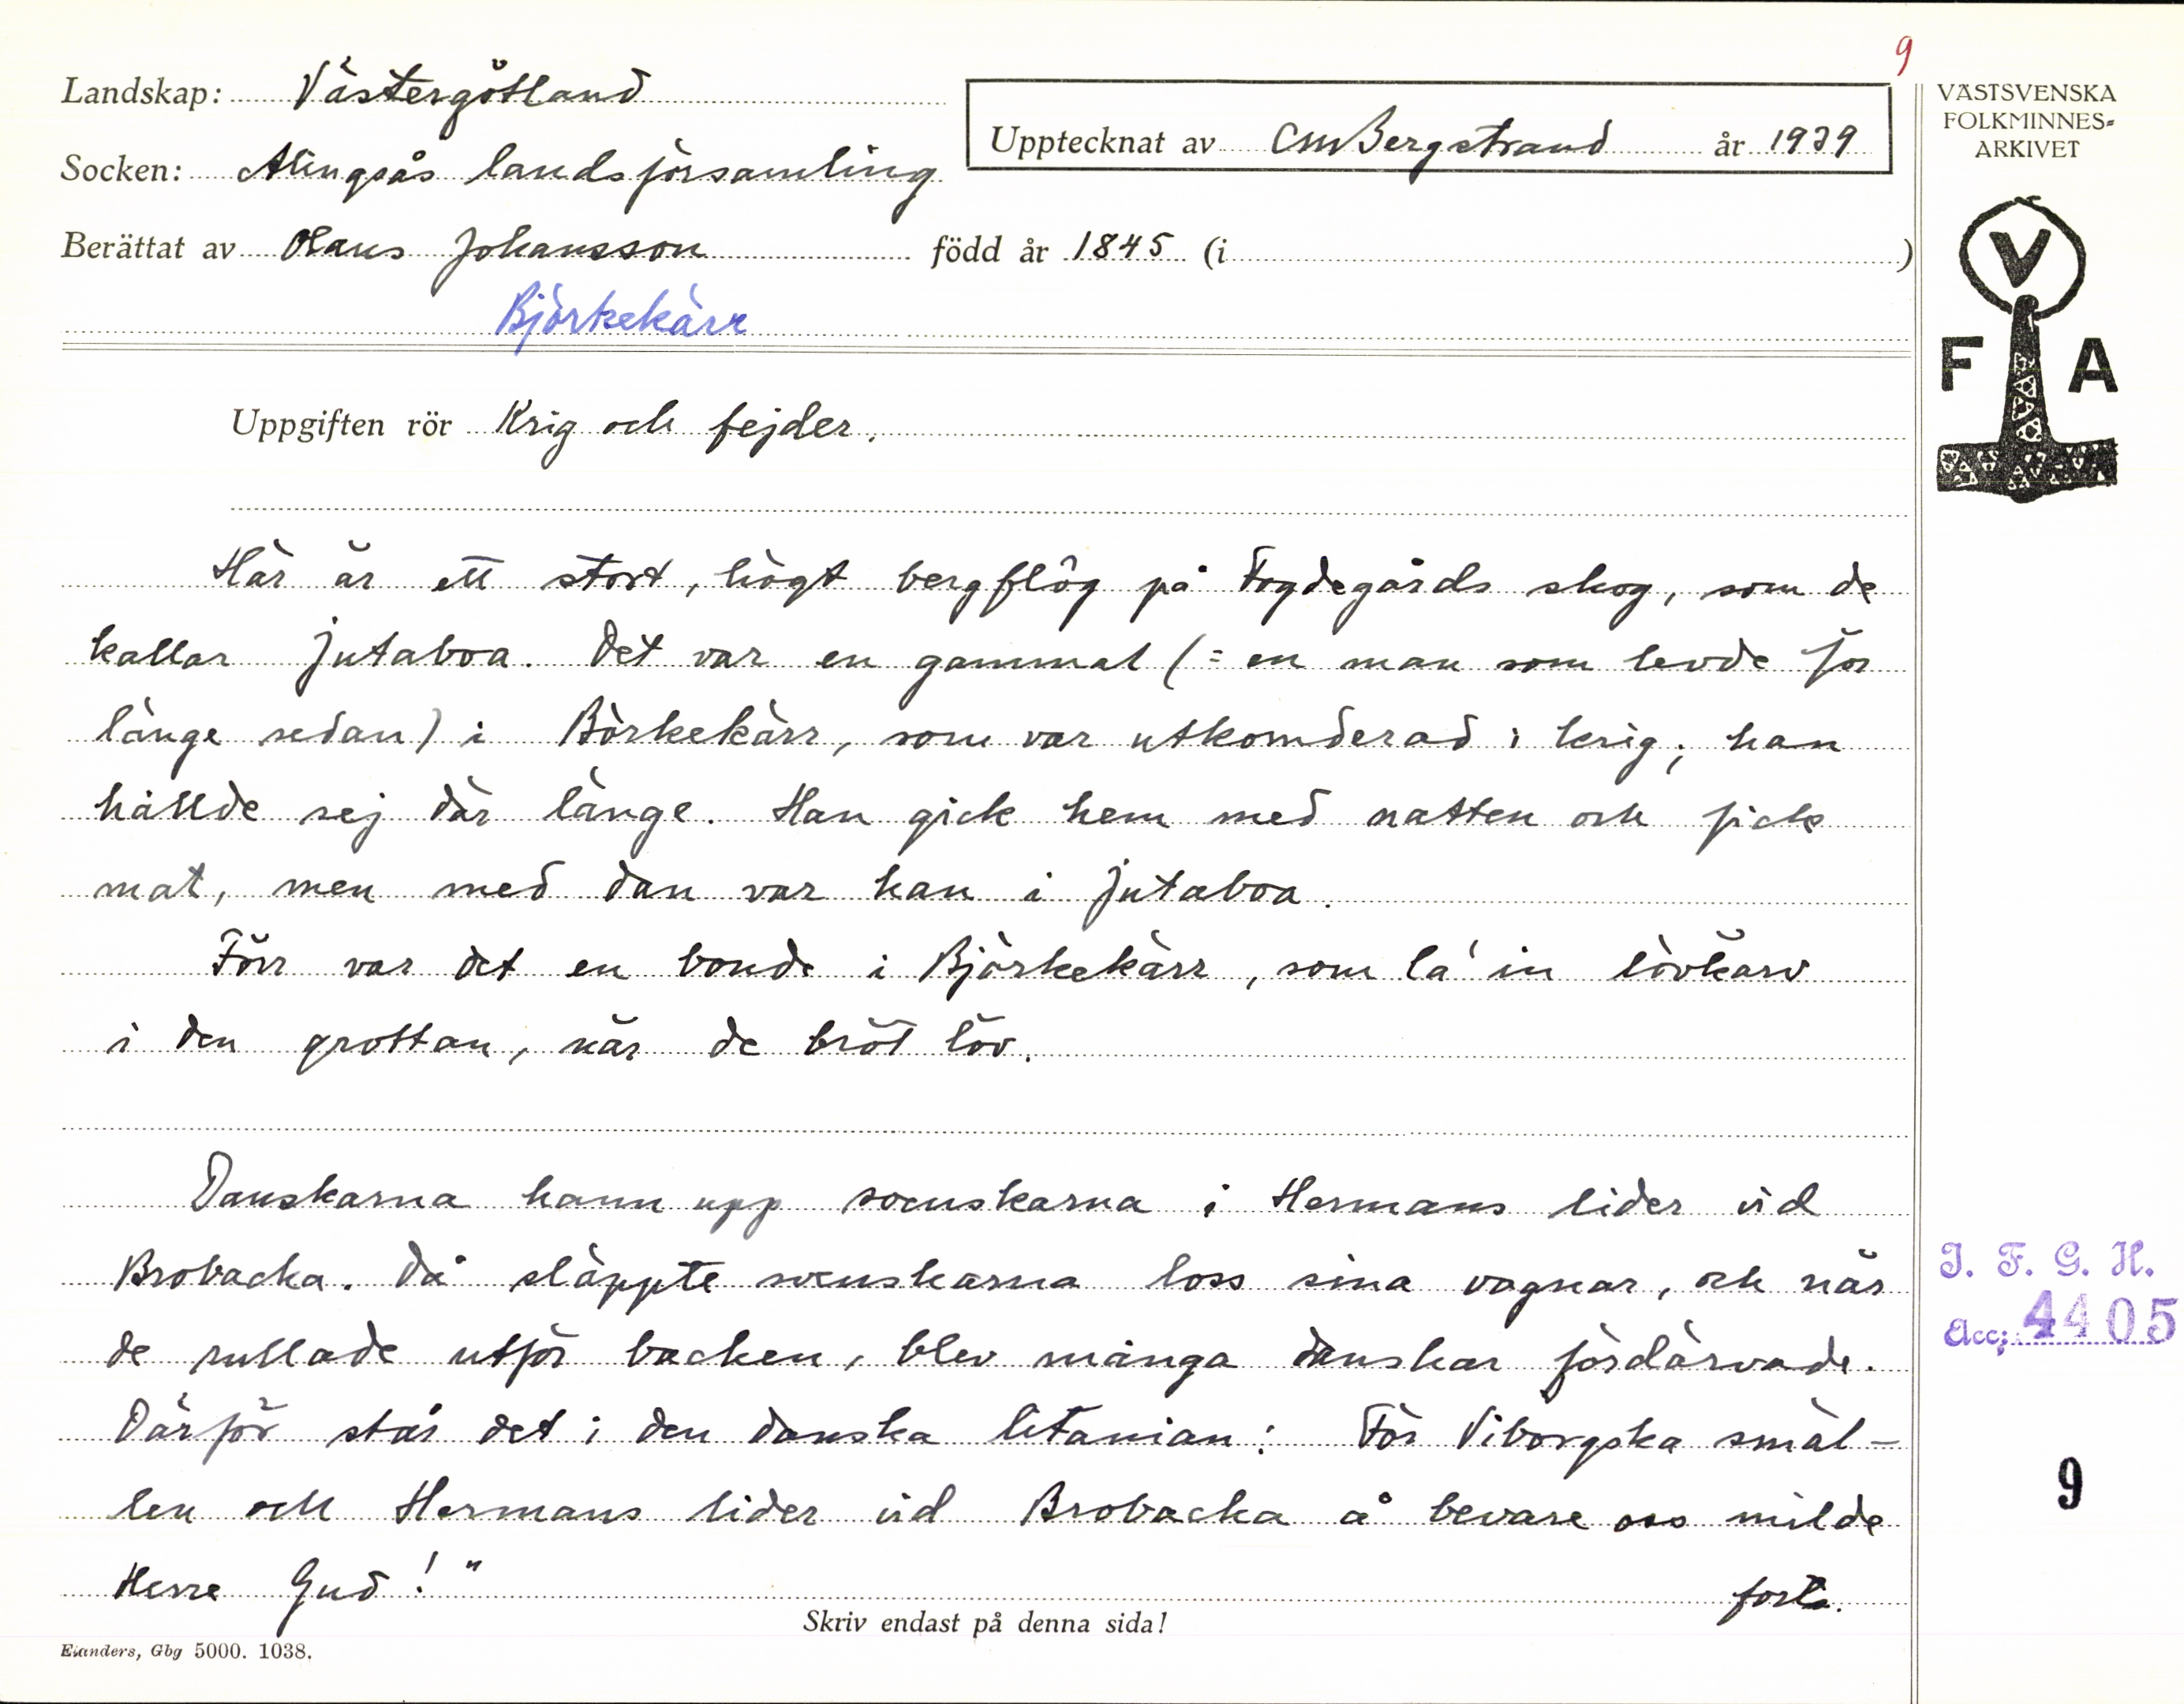 9
Landskap: Västergötland
Upptecknat av CMBergstrand år 1939
VÄSTSVENSKA
FOLKMINNES-
ARKIVET
Socken: Alingsås landsförsamling
Berättat av Olaus Johansson född år 1845 (i )
Björkekärr
V
F A
Uppgiften rör Krig och fejder.
Här är ett stort, högt bergflôg på Fogdegårds skog, som de
kallar Jutaboa. Det var en gammal (= en man som levde för
länge sedan) i Börkekärr, som var utkomderad i krig; han
hållde sej där länge. Han gick hem med natten och fick
mat, men med dan var han i Jutaboa.
Förr var det en bonde i Björkekärr, som la' in lövkärv
i den grottan, när de bröt löv.
Danskarna hann upp svenskarna i Hermans lider vid
Brobacka. Då släppte svenskarna loss sina vagnar, och när
de rullade utför backen, blev många danskar fördärvade.
Därför står det i den danska litanian: För Viborgska smäl-
len och Hermans lider vid Brobacka å bevare oss milde
Herre Gud!"
forts.
I. F. G. H.
Acc; 4405
9
Skriv endast på denna sida!
Elanders, Gbg 5000. 1038.